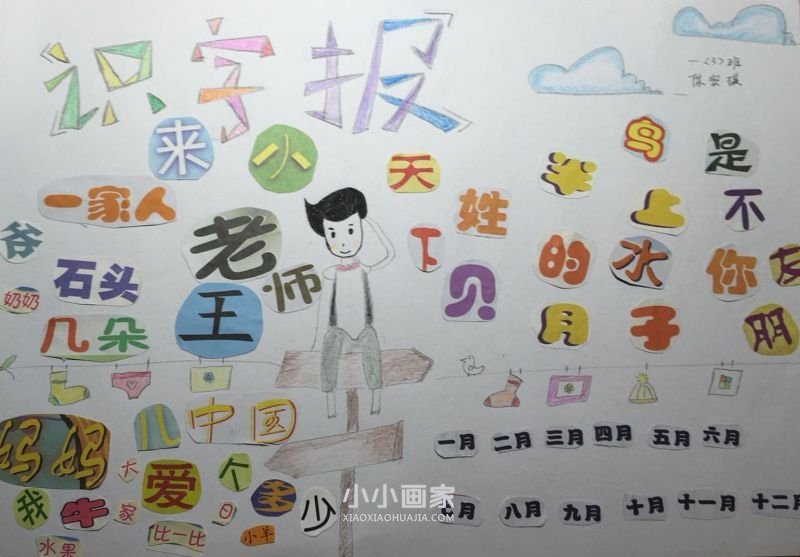 识字报
一〈3〉班
来
小
天
羊
鸟
是
一家人
姓
上
不
爷
老
师
下
的
水
你
友
石头
贝
奶奶
王
月
子
朋
几朵
妈妈
儿
中国
一月
二月
三月
四月
五月
六月
大
爱
个
多
少
我
牛
家
日
七月
八月
九月
十月
十一月
十二月
水果
比一比
小羊
小小画家
XIAOXIAOHUAJIA.COM